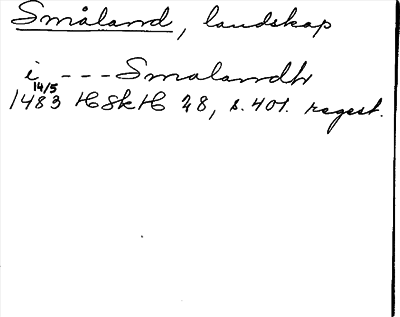 Småland, landskap
i --- Smalandh
14/5
1483 HSkH 28, s. 401. regest.